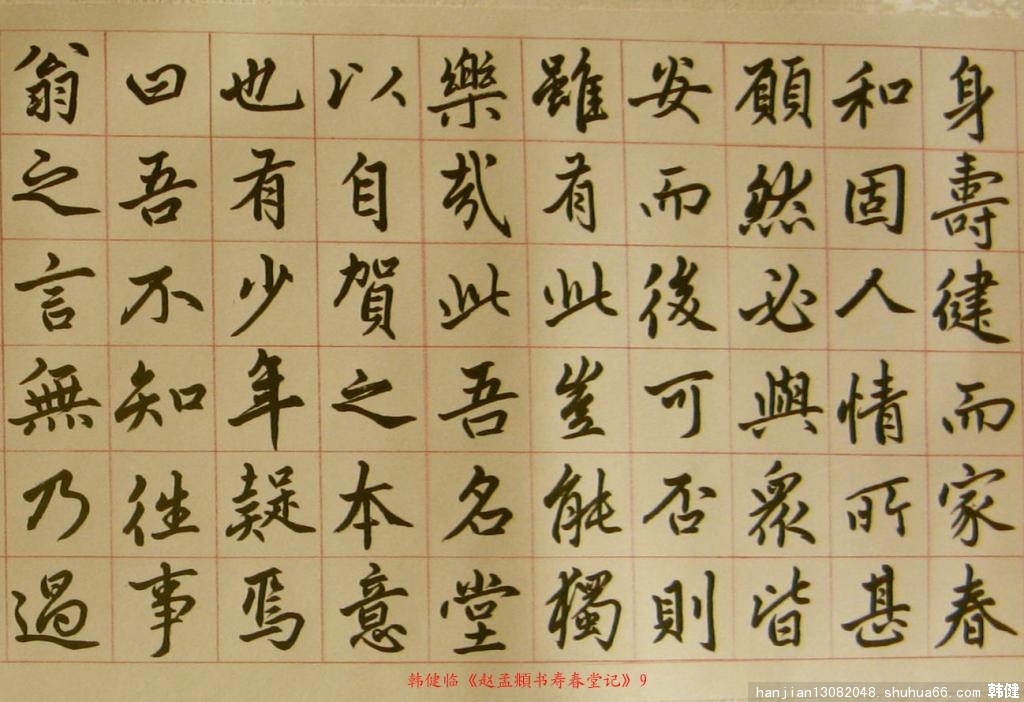 身壽健而家春
和固人情所甚
願然必與衆皆
安而後可否則
雖有此豈能獨
樂哉此吾名堂
以自賀之本意
也有少年疑焉
曰吾不知往事
翁之言無乃過
韩健临《赵孟頫书寿春堂记》9
hanjian13082048.shuhua66.com 韩健